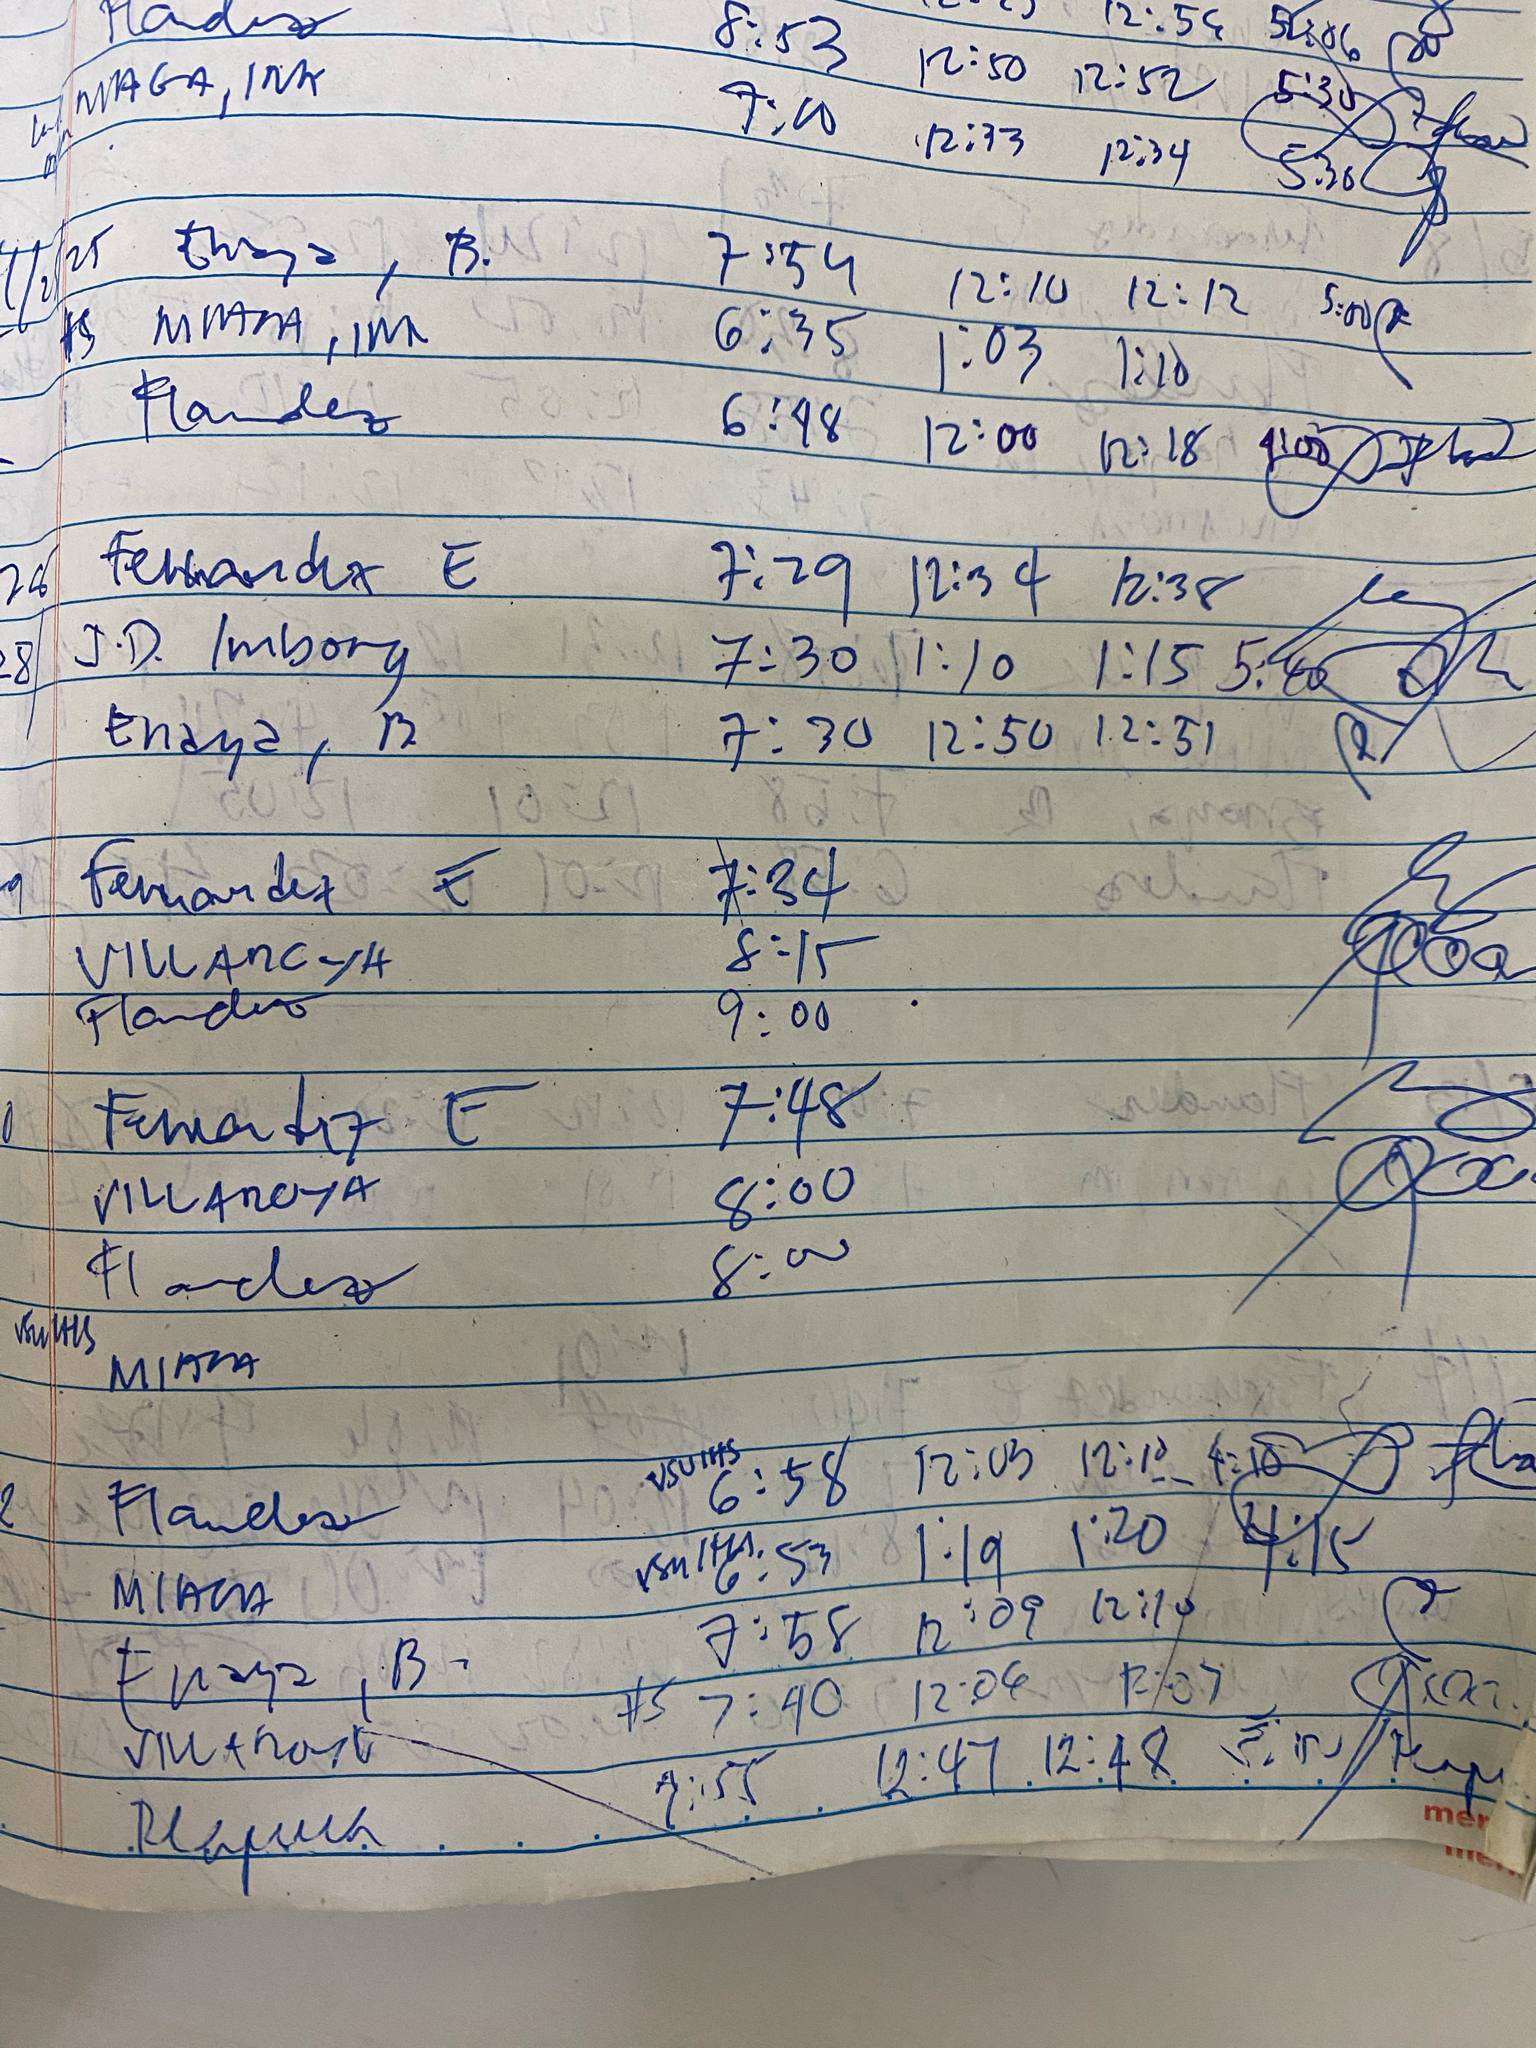 Flandez 8:53 12:54
MIAGA, INK 7:10 12:50 12:52 5:30
12:33 12:34 5:30
25 Enaya, B. 7:54 12:10 12:12 5:00
HS MIAGA, INK 6:35 1:03 1:10
Flandez 6:48 12:00 12:18 4:00
26 Fernandez E 7:29 12:34 12:38
28 J.D. Imbong 7:30 1:10 1:15 5:40
Enaya, B 7:30 12:50 12:51
9 Fernandez E 7:34
VILLAROYA 8:15
Flandez 9:00
0 Fernandez E 7:48
VILLAROYA 8:00
Flandez 8:00
VSUIHS MIAGA
2 Flandez VSUIHS 6:58 12:03 12:10 4:10
MIAGA VSUIHS 6:53 1:19 1:20 4:15
Enaya, B- 7:58 12:09 12:10
VILLAROYA HS 7:40 12:06 12:07
7:55 12:47 12:48
mer